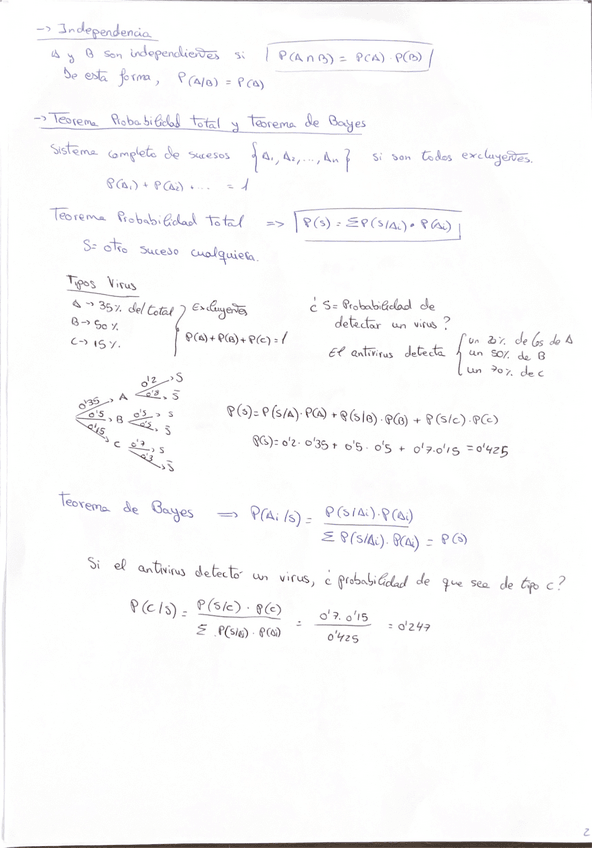 → Independencia
A y B son independientes si P(A∩B) = P(A) · P(B)
De esta forma, P(A/B) = P(A)
→ Teorema Probabilidad total y Teorema de Bayes
Sistema completo de sucesos {A₁, A₂, ..., Aₙ} si son todos excluyentes.
P(A₁) + P(A₂) ... = 1
Teorema Probabilidad total => P(S) = ΣP(S/Aᵢ) · P(Aᵢ)
S = otro suceso cualquiera.
Tipos Virus
A → 35% del total
B → 50%
C → 15%
Excluyentes
P(A) + P(B) + P(C) = 1
¿ S = Probabilidad de
detectar un virus ?
El antivirus detecta
un 20% de los de A
un 50% de B
un 70% de C
0'35 A 0'2 S
0'8 S̄
0'5 B 0'5 S
0'5 S̄
0'15 C 0'7 S
0'3 S̄
P(S) = P(S/A) · P(A) + P(S/B) · P(B) + P(S/C) · P(C)
P(S) = 0'2 · 0'35 + 0'5 · 0'5 + 0'7 · 0'15 = 0'425
Teorema de Bayes => P(Aᵢ/S) = P(S/Aᵢ) · P(Aᵢ)
Σ P(S/Aᵢ) · P(Aᵢ) = P(S)
Si el antivirus detectó un virus, ¿ probabilidad de que sea de tipo C ?
P(C/S) = P(S/C) · P(C) = 0'7 · 0'15 = 0'247
Σ P(S/Aᵢ) · P(Aᵢ) 0'425
2